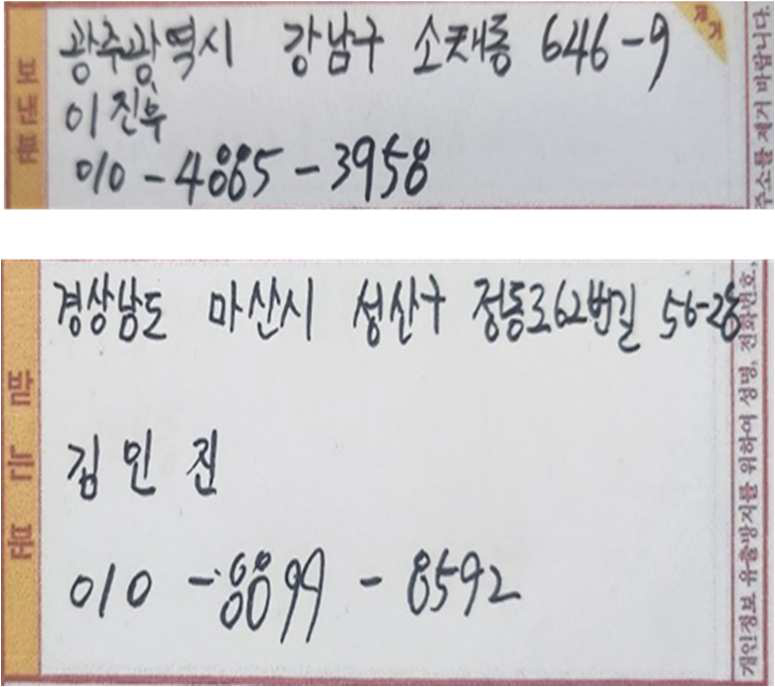 보내는 분
광주광역시 강남구 소태동 646-9
이진우
010-4885-3958
주소를 제거 바랍니다.
경상남도 마산시 성산구 정동로62번길 56-28
김인진
010-8899-8592
받는 분
개인정보 유출방지를 위하여 성명, 전화번호,